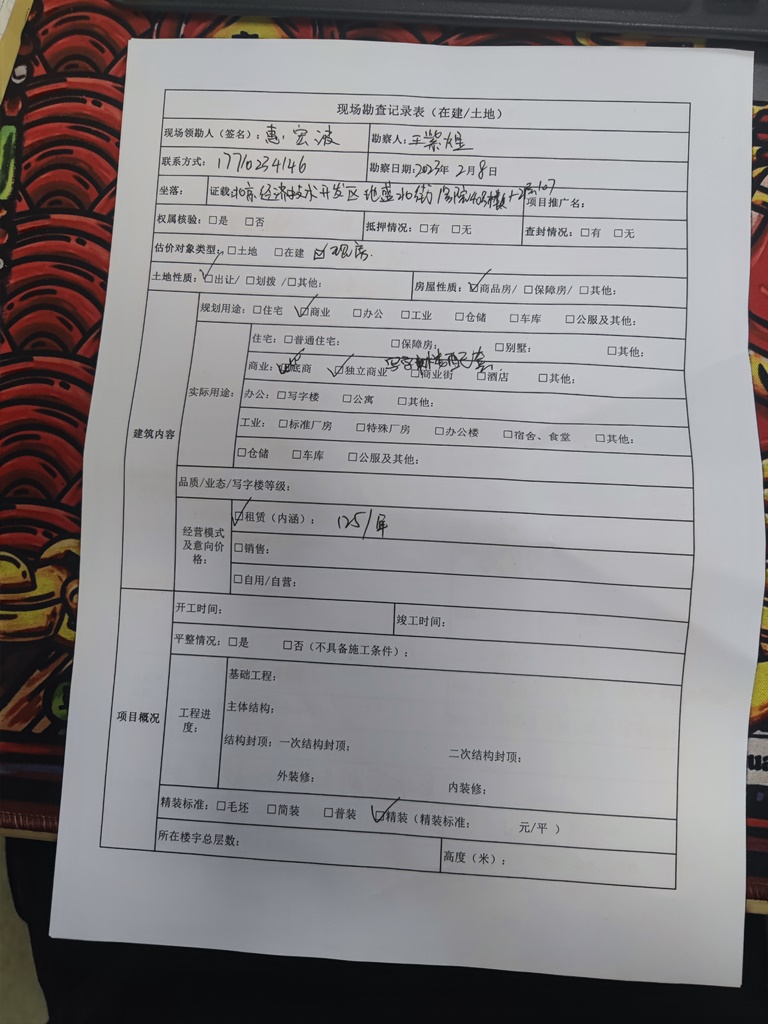 现场勘查记录表（在建/土地）
现场领勘人（签名）：惠宏波 勘察人：王紫煌
联系方式：17710234146 勘察日期：2023年 2月8日
坐落： 证载：北京经济技术开发区地盛北街1号院40号楼 1-2层107 项目推广名：
权属核验：□是 □否 抵押情况：□有 □无 查封情况：□有 □无
估价对象类型：□土地 □在建 ☑现房
土地性质：☑出让/ □划拨 /□其他： 房屋性质：☑商品房/ □保障房/ □其他：
建筑内容
规划用途：□住宅 ☑商业 □办公 □工业 □仓储 □车库 □公服及其他：
实际用途：
住宅：□普通住宅： □保障房： □别墅： □其他：
商业：☑底商 ☑独立商业 □商业街 □酒店 □其他：
办公：□写字楼 □公寓 □其他：
工业：□标准厂房 □特殊厂房 □办公楼 □宿舍、食堂 □其他：
□仓储 □车库 □公服及其他：
品质/业态/写字楼等级：
经营模式及意向价格：
☑租赁（内涵）： 125/
□销售：
□自用/自营：
项目概况
开工时间： 竣工时间：
平整情况：□是 □否（不具备施工条件）；
工程进度：
基础工程：
主体结构：
结构封顶：一次结构封顶： 二次结构封顶：
外装修： 内装修：
精装标准：□毛坯 □简装 □普装 ☑精装（精装标准： 元/平 ）
所在楼宇总层数： 高度（米）；